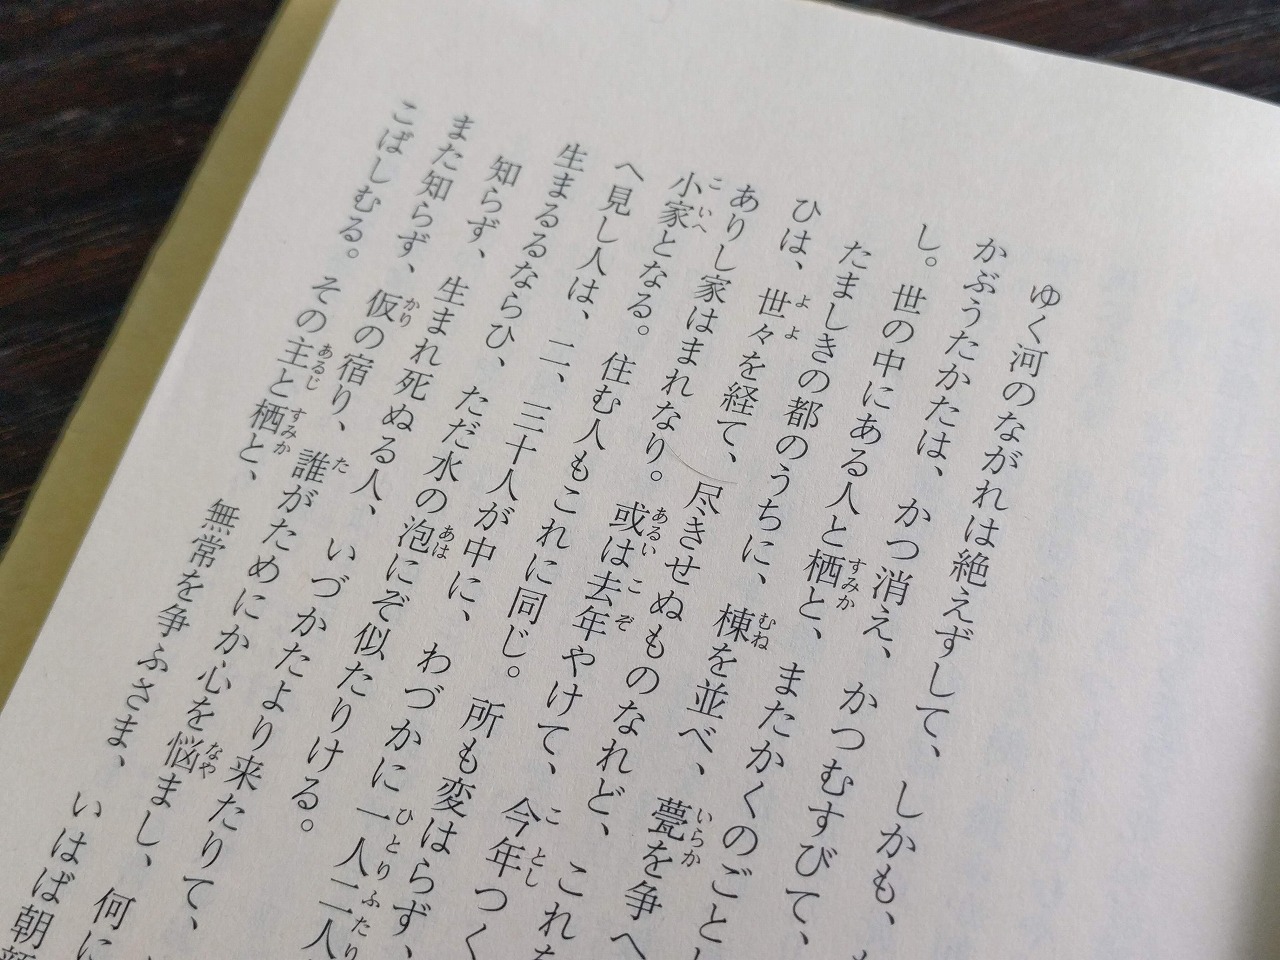 ゆく河のながれは絶えずして、しかも、
かぶうたかたは、かつ消え、かつむすびて、
し。世の中にある人と栖と、またかくのごとし
すみか
たましきの都のうちに、棟を並べ、甍を争へ
むね いらか
ひは、世々を経て、尽きせぬものなれど、これ
よよ
ありし家はまれなり。或は去年やけて、今年つく
あるい こぞ ことし
小家となる。住む人もこれに同じ。所も変はらず、
こいへ
へ見し人は、二、三十人が中に、わづかに一人二人
ひとりふたり
生まるるならひ、ただ水の泡にぞ似たりける。
あは
知らず、生まれ死ぬる人、いづかたより来たりて、
また知らず、仮の宿り、誰がためにか心を悩まし、何に
かり た なや
こばしむる。その主と栖と、無常を争ふさま、いはば朝顔
あるじ すみか